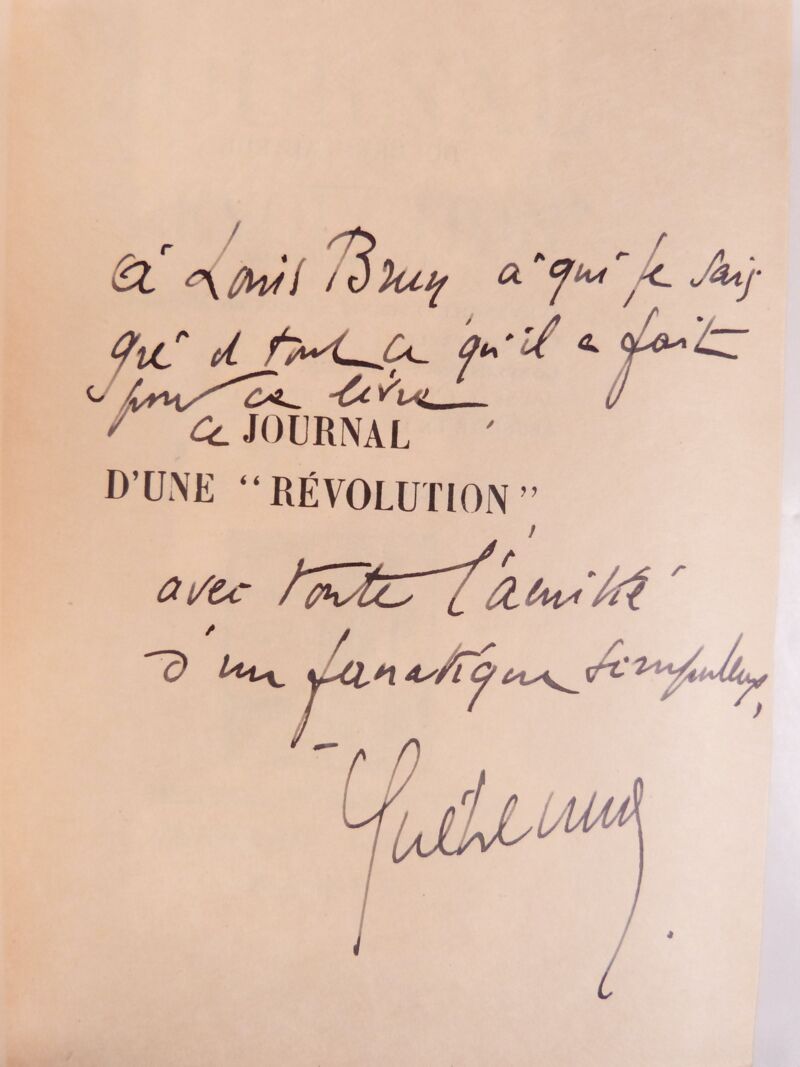 à Louis Brun, à qui je sais
gré de tout ce qu'il a fait
pour ce livre,
ce JOURNAL
D'UNE “RÉVOLUTION”,
avec toute l'amitié
d'un fanatique scrupuleux,
- Guéhenno.